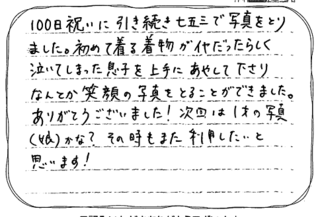 100日祝いに引き続き七五三で写真をとり
ました。初めて着る着物がイヤだったらしく
泣いてしまった息子を上手にあやして下さり
なんとか笑顔の写真をとることができました。
ありがとうございました!次回は1才の写真
(娘)かな?その時もまた利用したいと
思います!